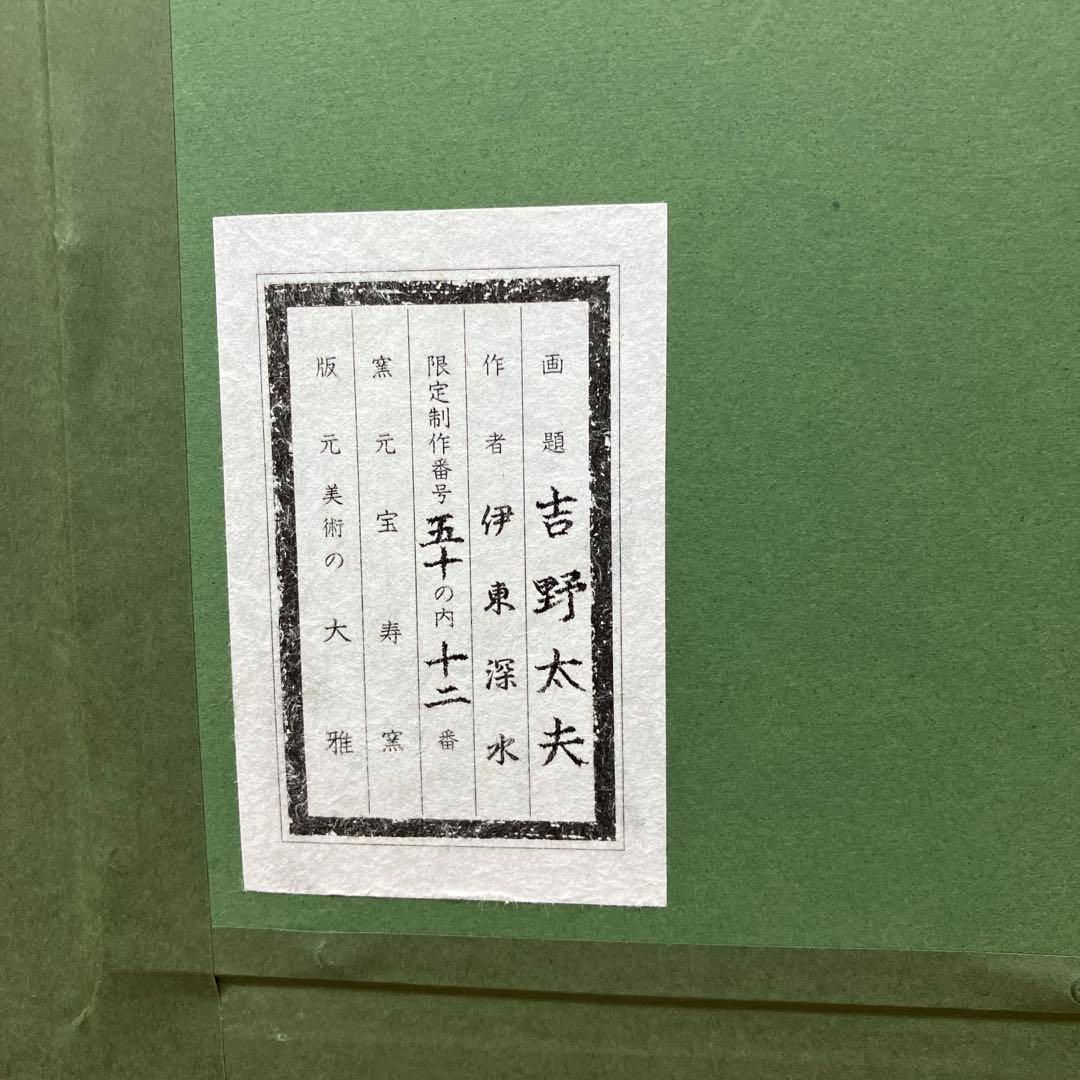 画題 吉野太夫
作者 伊東深水
限定制作番号 五十の内 十二番
窯元 宝寿窯
版元 美術の大雅